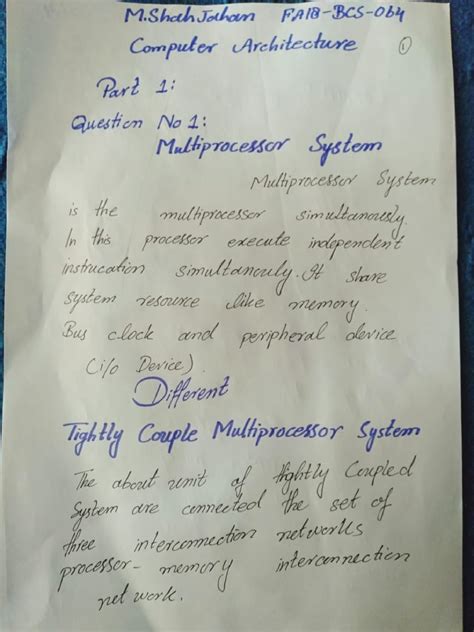 M.Shah Jahan FA18-BCS-064
Computer Architecture 1
Part 1:
Question No 1:
Multiprocessor System
Multiprocessor System
is the multiprocessor simultanously.
In this processor execute independent
instrucation simultanouly. It share
system resource like memory.
Bus clock and peripheral device
(i/o Device).
Different
Tightly Couple Multiprocessor System
The about unit of tightly Coupled
System are connected the set of
three interconnection networks
processor-memory interconnection
network.